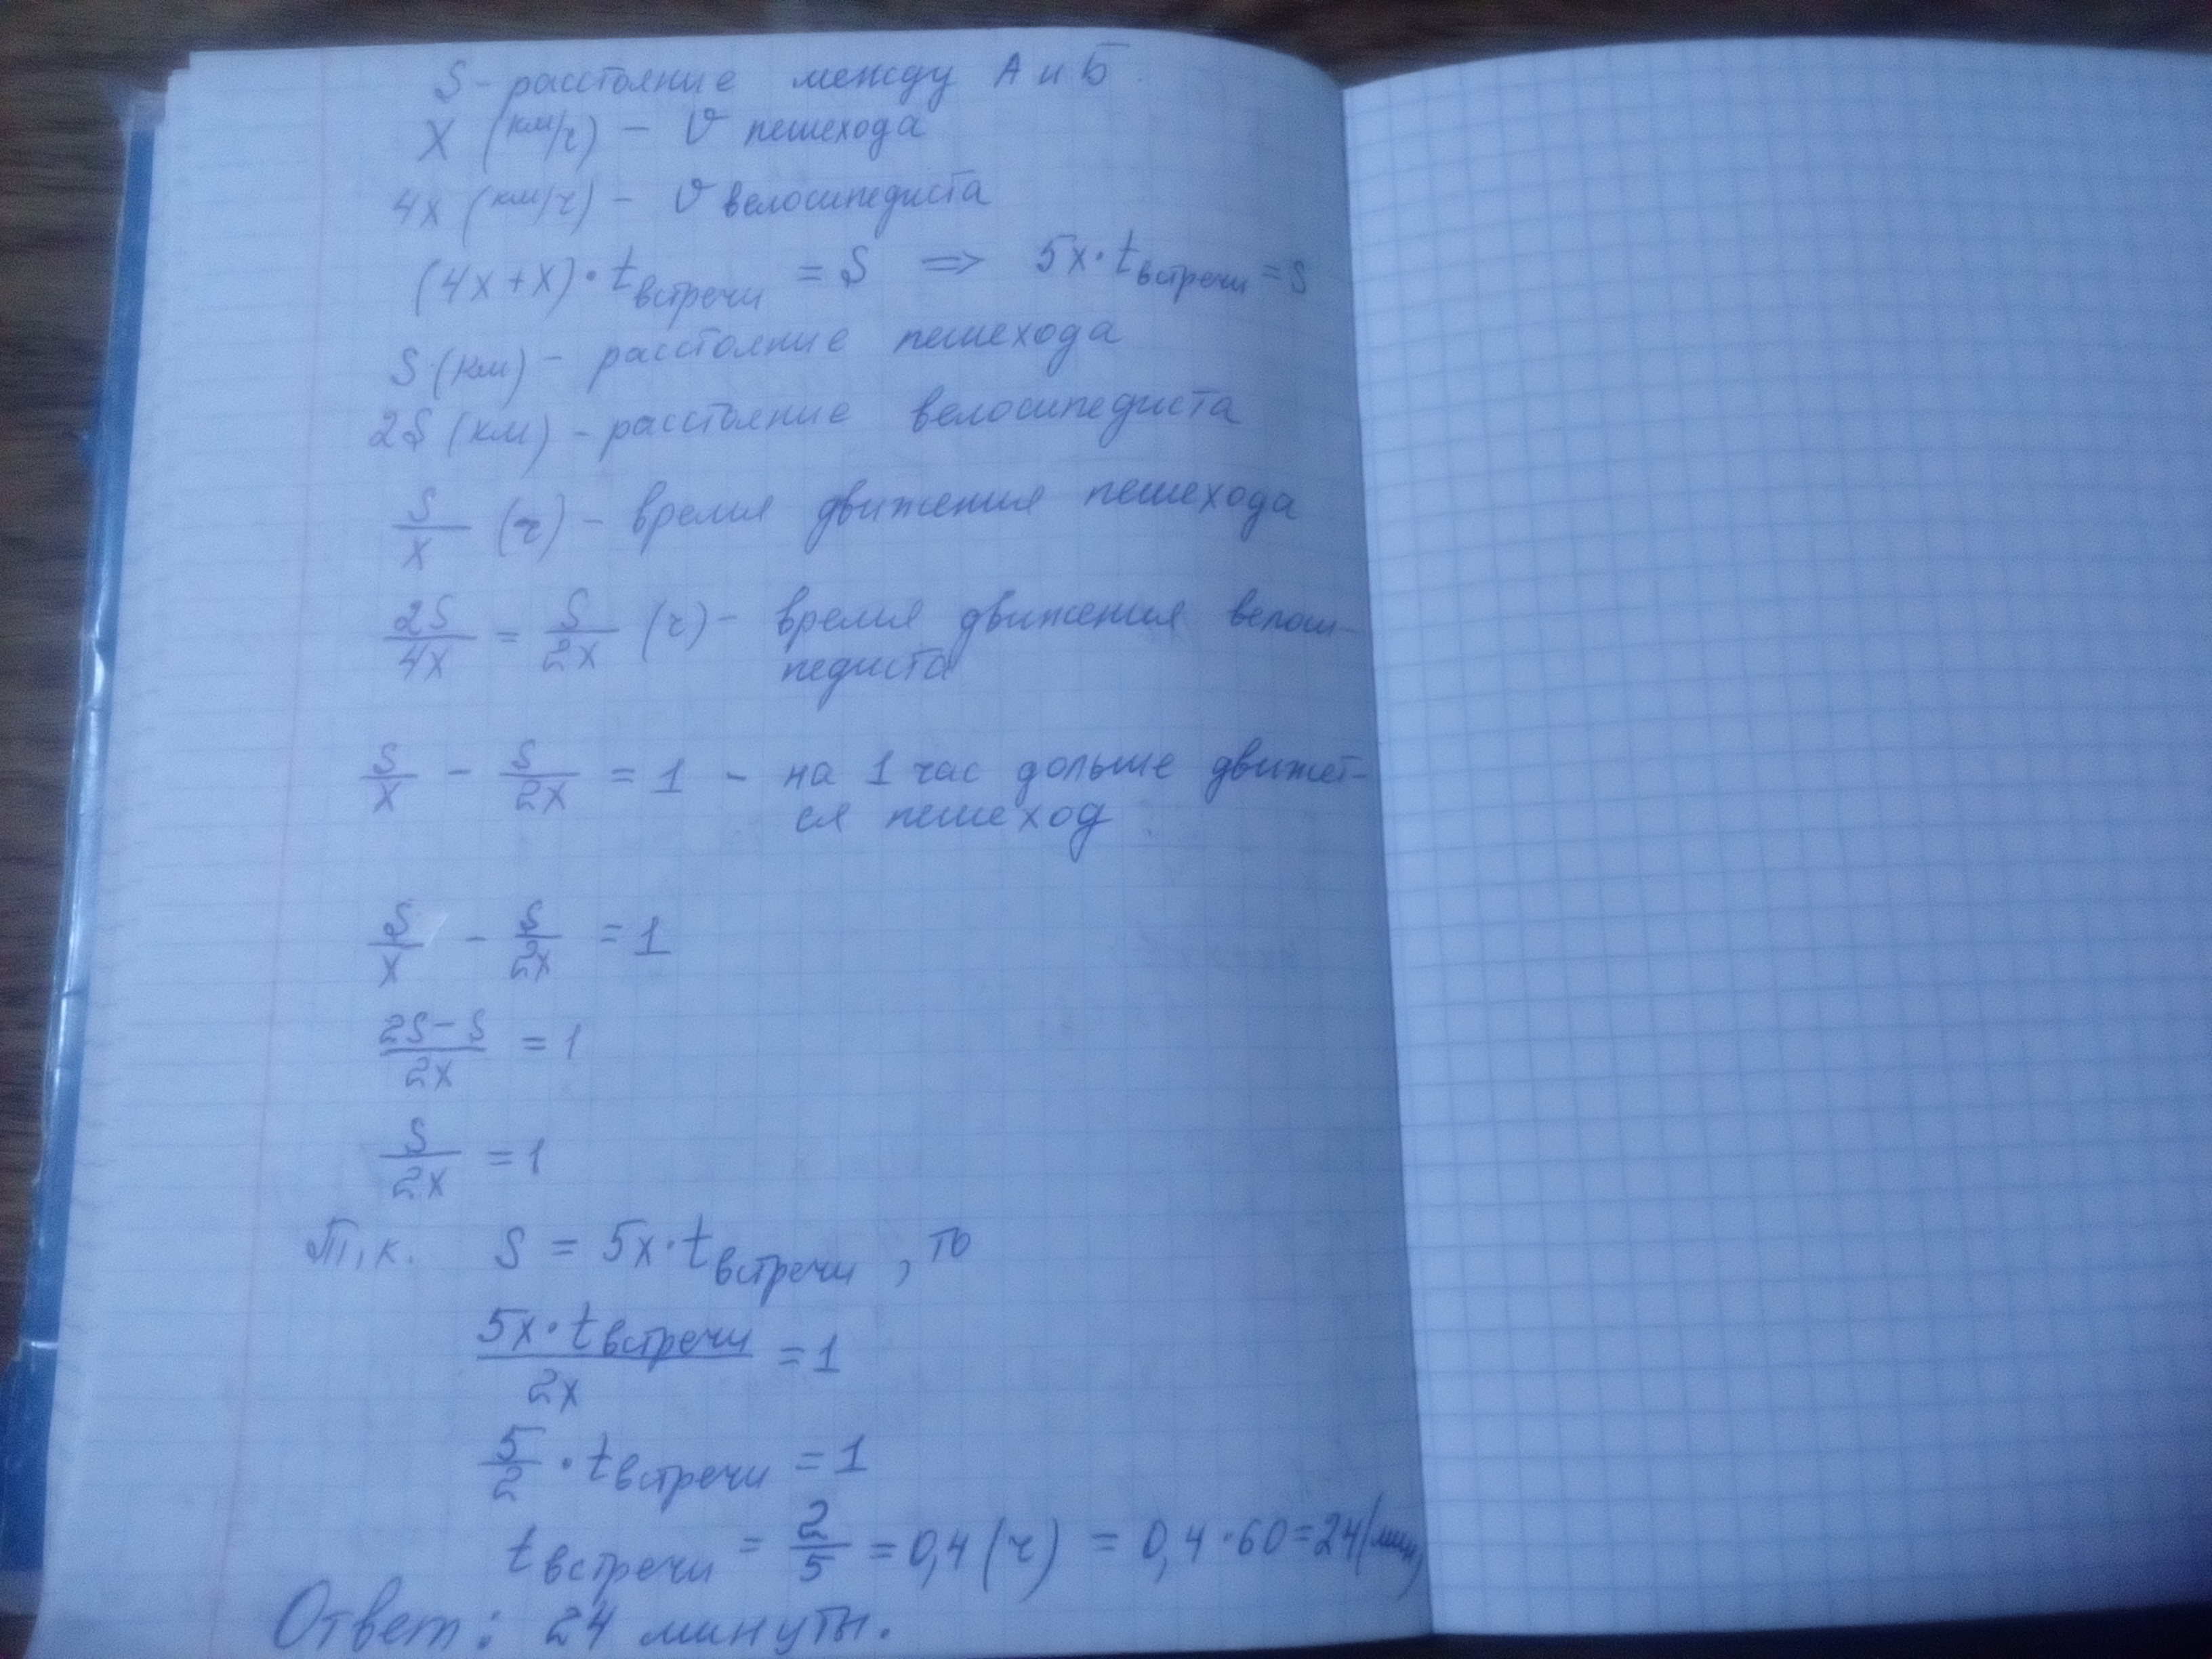 S - расстояние между А и Б.
X (км/ч) - υ пешехода
4x (км/ч) - υ велосипедиста
(4x+x)·t встречи = S => 5x·t встречи = S
S (км) - расстояние пешехода
2S (км) - расстояние велосипедиста
S/x (ч) - время движения пешехода
2S/4x = S/2x (ч) - время движения велоси-
педиста
S/x - S/2x = 1 - на 1 час дольше движет-
ся пешеход
S/x - S/2x = 1
2S-S/2x = 1
S/2x = 1
Т.к. S = 5x·t встречи, то
5x·t встречи/2x = 1
5/2 · t встречи = 1
t встречи = 2/5 = 0,4 (ч) = 0,4·60=24(мин)
Ответ: 24 минуты.